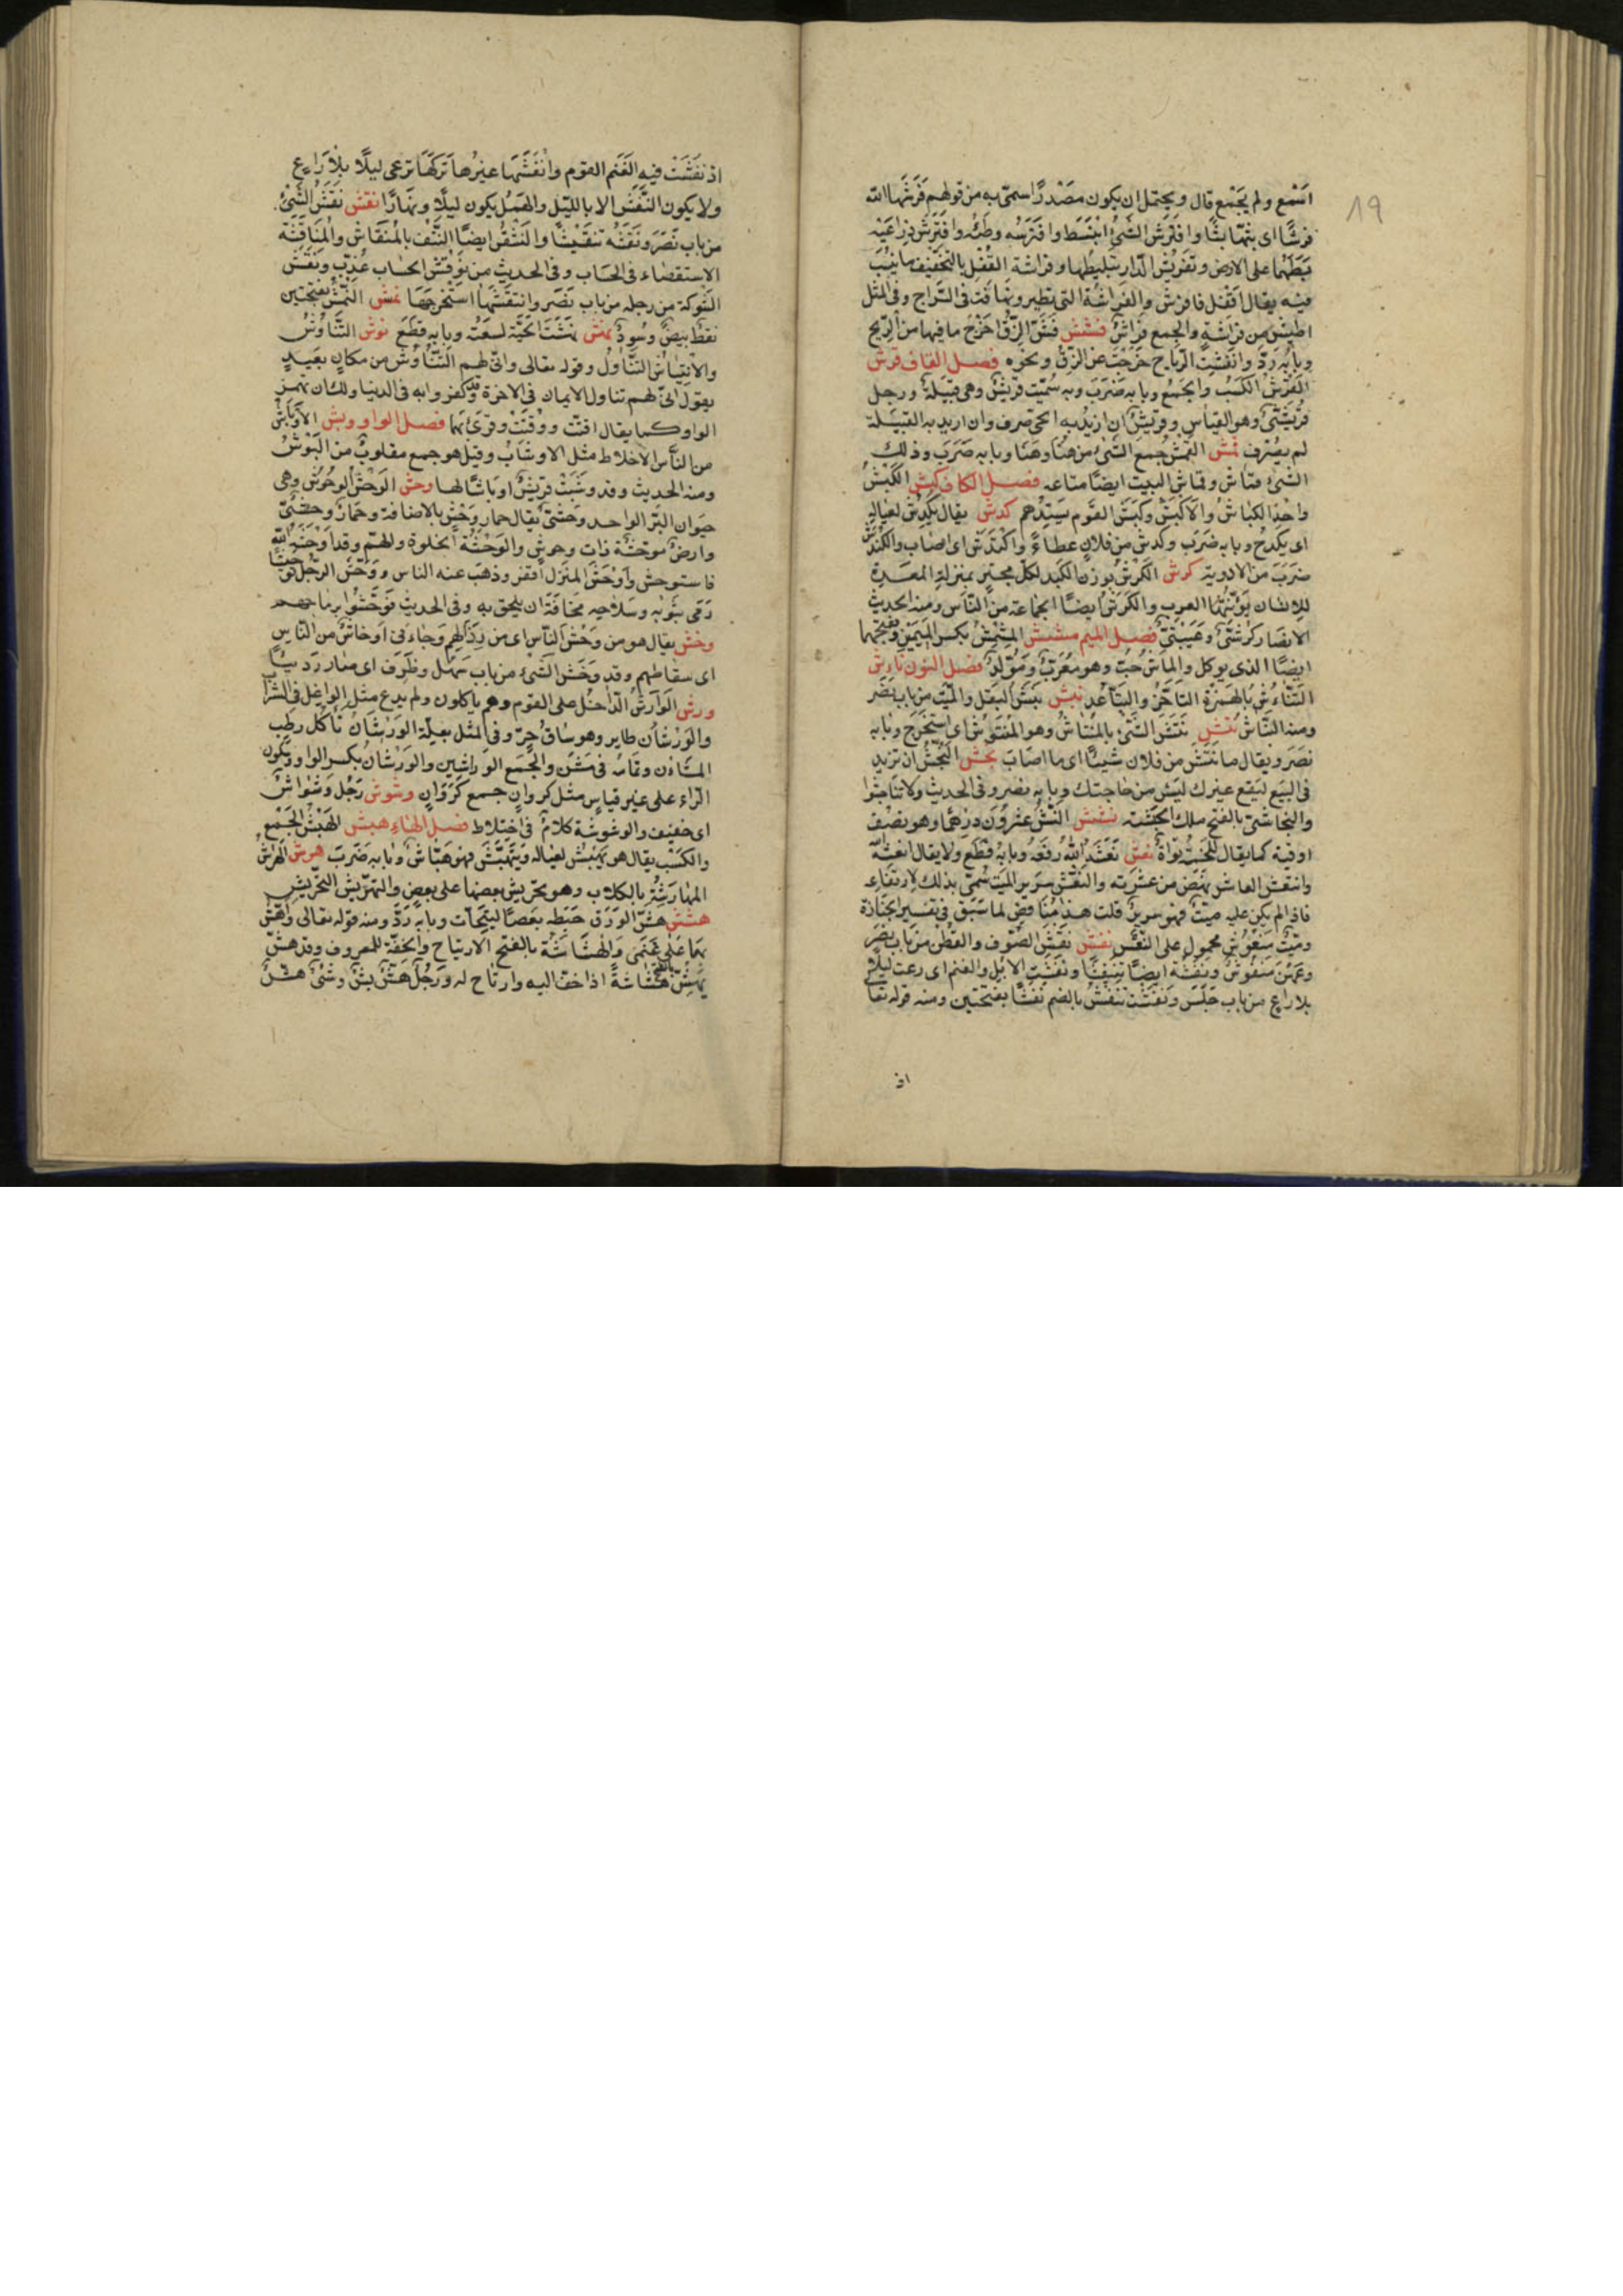 19
اسمع ولم يجمع قال ويحتمل ان يكون مصدرا سمى به من قولهم فرشها الله
فرشا اى بثها بثا وافترش الشئ انبسط وافترسه وطئه وافترش ذراعيه
بسطهما على الارض وتفريش الدار تبليطها وفراشة القفل بالتخفيف ما ينشب
فيه يقال اقفل فافرش والفراشة التى تطير وتهافت فى السراج وفى المثل
اطيش من فراشة والجمع فراش فشش فش الزق اخرج ما فيها من الريح
وبابه رد وانفشت الرياح خرجت عن الزق ونحوه فصل القاف قرش
القرش الكسب والجمع وبابه ضرب وبه سميت قريش وهى قبيلة ورجل
قريشى وهو القياس وقريش ان اريد به الحى صرف وان اريد به القبيلة
لم يصرف قمش القمش جمع الشئ من هنا وهنا وبابه ضرب وذلك
الشئ قماش وقماش البيت ايضا متاعه فصل الكاف كبش الكبش
واحد الكباش والاكبش وكبش القوم سيدهم كدش يقال يكدش لعياله
اى يكدح وبابه ضرب وكدش من فلان عطاء واكتدش اى اصاب والكندش
ضرب من الادوية كرش الكرش بوزن الكبد لكل مجتر بمنزلة المعدة
للانسان تؤنثها العرب والكرش ايضا الجماعة من الناس ومنه الحديث
الانصار كرشى وعيبتى فصل الميم مشمش المشمش بكسر الميمين وفتحهما
ايضا الذى يوكل والماش حب وهو معرب ومولد فصل النون ناءش
التناءش بالهمزة التاخر والتباعد نبش نبش البقل والميت من باب نصر
ومنه النباش نتش نتش الشئ بالمنتاش وهو المنتوش اى استخرج وبابه
نصر ويقال ما نتش من فلان شيئا اى ما اصاب نجش النجش ان تزيد
فى البيع ليقع غيرك ليس من حاجتك وبابه نصر وفى الحديث ولا تناجشوا
والنجاشى بالفتح ملك الحبشة نشش النش عشرون درهما وهو نصف
اوقية كما يقال للخمسة نواة نعش نعشه الله رفعه وبابه قطع ولا يقال انعشه
وانتعش العاثر نهض من عثرته والنعش سرير الميت سمى بذلك لارتفاعه
فاذا لم يكن عليه ميت فهو سرير قلت هذا مناقض لما سبق فى تفسير الجنازة
وميت منعوش محمول على النعش نفش نفش الصوف والقطن من باب نصر
وعهن منفوش ونفشه ايضا تنفيشا ونفشت الابل والغنم اى رعت ليلا
بلا راع من باب جلس ونفشت تنفش بالضم نفشا بفتحتين ومنه قوله تعا
اذ
اذ نفشت فيه الغنم القوم وانفشها غيرها تركها ترعى ليلا بلا راع
ولا يكون النفش الا بالليل والهمل يكون ليلا ونهارا نقش نقش الشئ
من باب نصر ونقشه تنقيشا والنقش ايضا النتف بالمنقاش والمناقشة
الاستقصاء فى الحساب وفى الحديث من نوقش الحساب عذب ونقش
الشوكة من رجله من باب نصر وانتقشها استخرجها نمش النمش بفتحتين
نقط بيض وسود نهش نهشته الحية لسعته وبابه قطع نوش التناوش
والانتياش التناول وقوله تعالى وانى لهم التناوش من مكان بعيد
يقول انى لهم تناول الايمان فى الاخرة وقد كفروا به فى الدنيا ولك ان تهمز
الواو كما يقال اقتت ووقتت وقرئ بهما فصل الواو وبش الاوباش
من الناس الاخلاط مثل الاوشاب وقيل هو جمع مقلوب من البوش
ومنه الحديث وقد وبشت قريش اوباشا لها وحش الوحش الوحوش وهى
حيوان البر الواحد وحشى يقال حمار وحش بالاضافة وحمار وحشى
وارض موحشة ذات وحوش والوحشة الخلوة والهم وقد اوحشه الله
فاستوحش واوحش المنزل اقفر وذهب عنه الناس ووحش الرجل توحيشا
رمى بثوبه وسلاحه مخافة ان يلحق به وفى الحديث فوحشوا برماحهم
وخش يقال هو من وخش الناس اى من رذالهم وجاءنى اوخاش من الناس
اى سقاطهم وقد وخش الشئ من باب سهل وظرف اى صار رديئا
ورش الوارش الداخل على القوم وهم ياكلون ولم يدع مثل الواغل فى الشراب
والورشان طاير وهو ساق حر وفى المثل بعلة الورشان تأكل رطب
المشان وتمامه فى مشن والجمع الوراشين والورشان بكسر الواو وسكون
الراء على غير قياس مثل كروان جمع كروان وشوش رجل وشواش
اى خفيف والوشوشة كلام فى اختلاط فصل الهاء هبش الهبش الجمع
والكسب يقال هو يهبش لعياله ويتهبش فهو هباش وبابه ضرب هرش الهراش
المهارشة بالكلاب وهو تحريش بعضها على بعض والتهريش التحريش
هشش هش الورق خبطه بعصا ليتحات وبابه رد ومنه قوله تعالى واهش
بها على غنمى والهشاشة بالفتح الارتياح والخفة للمعروف وقد هش
يهش بالفتح هشاشة اذا خف اليه وارتاح له ورجل هش بش وشئ هش